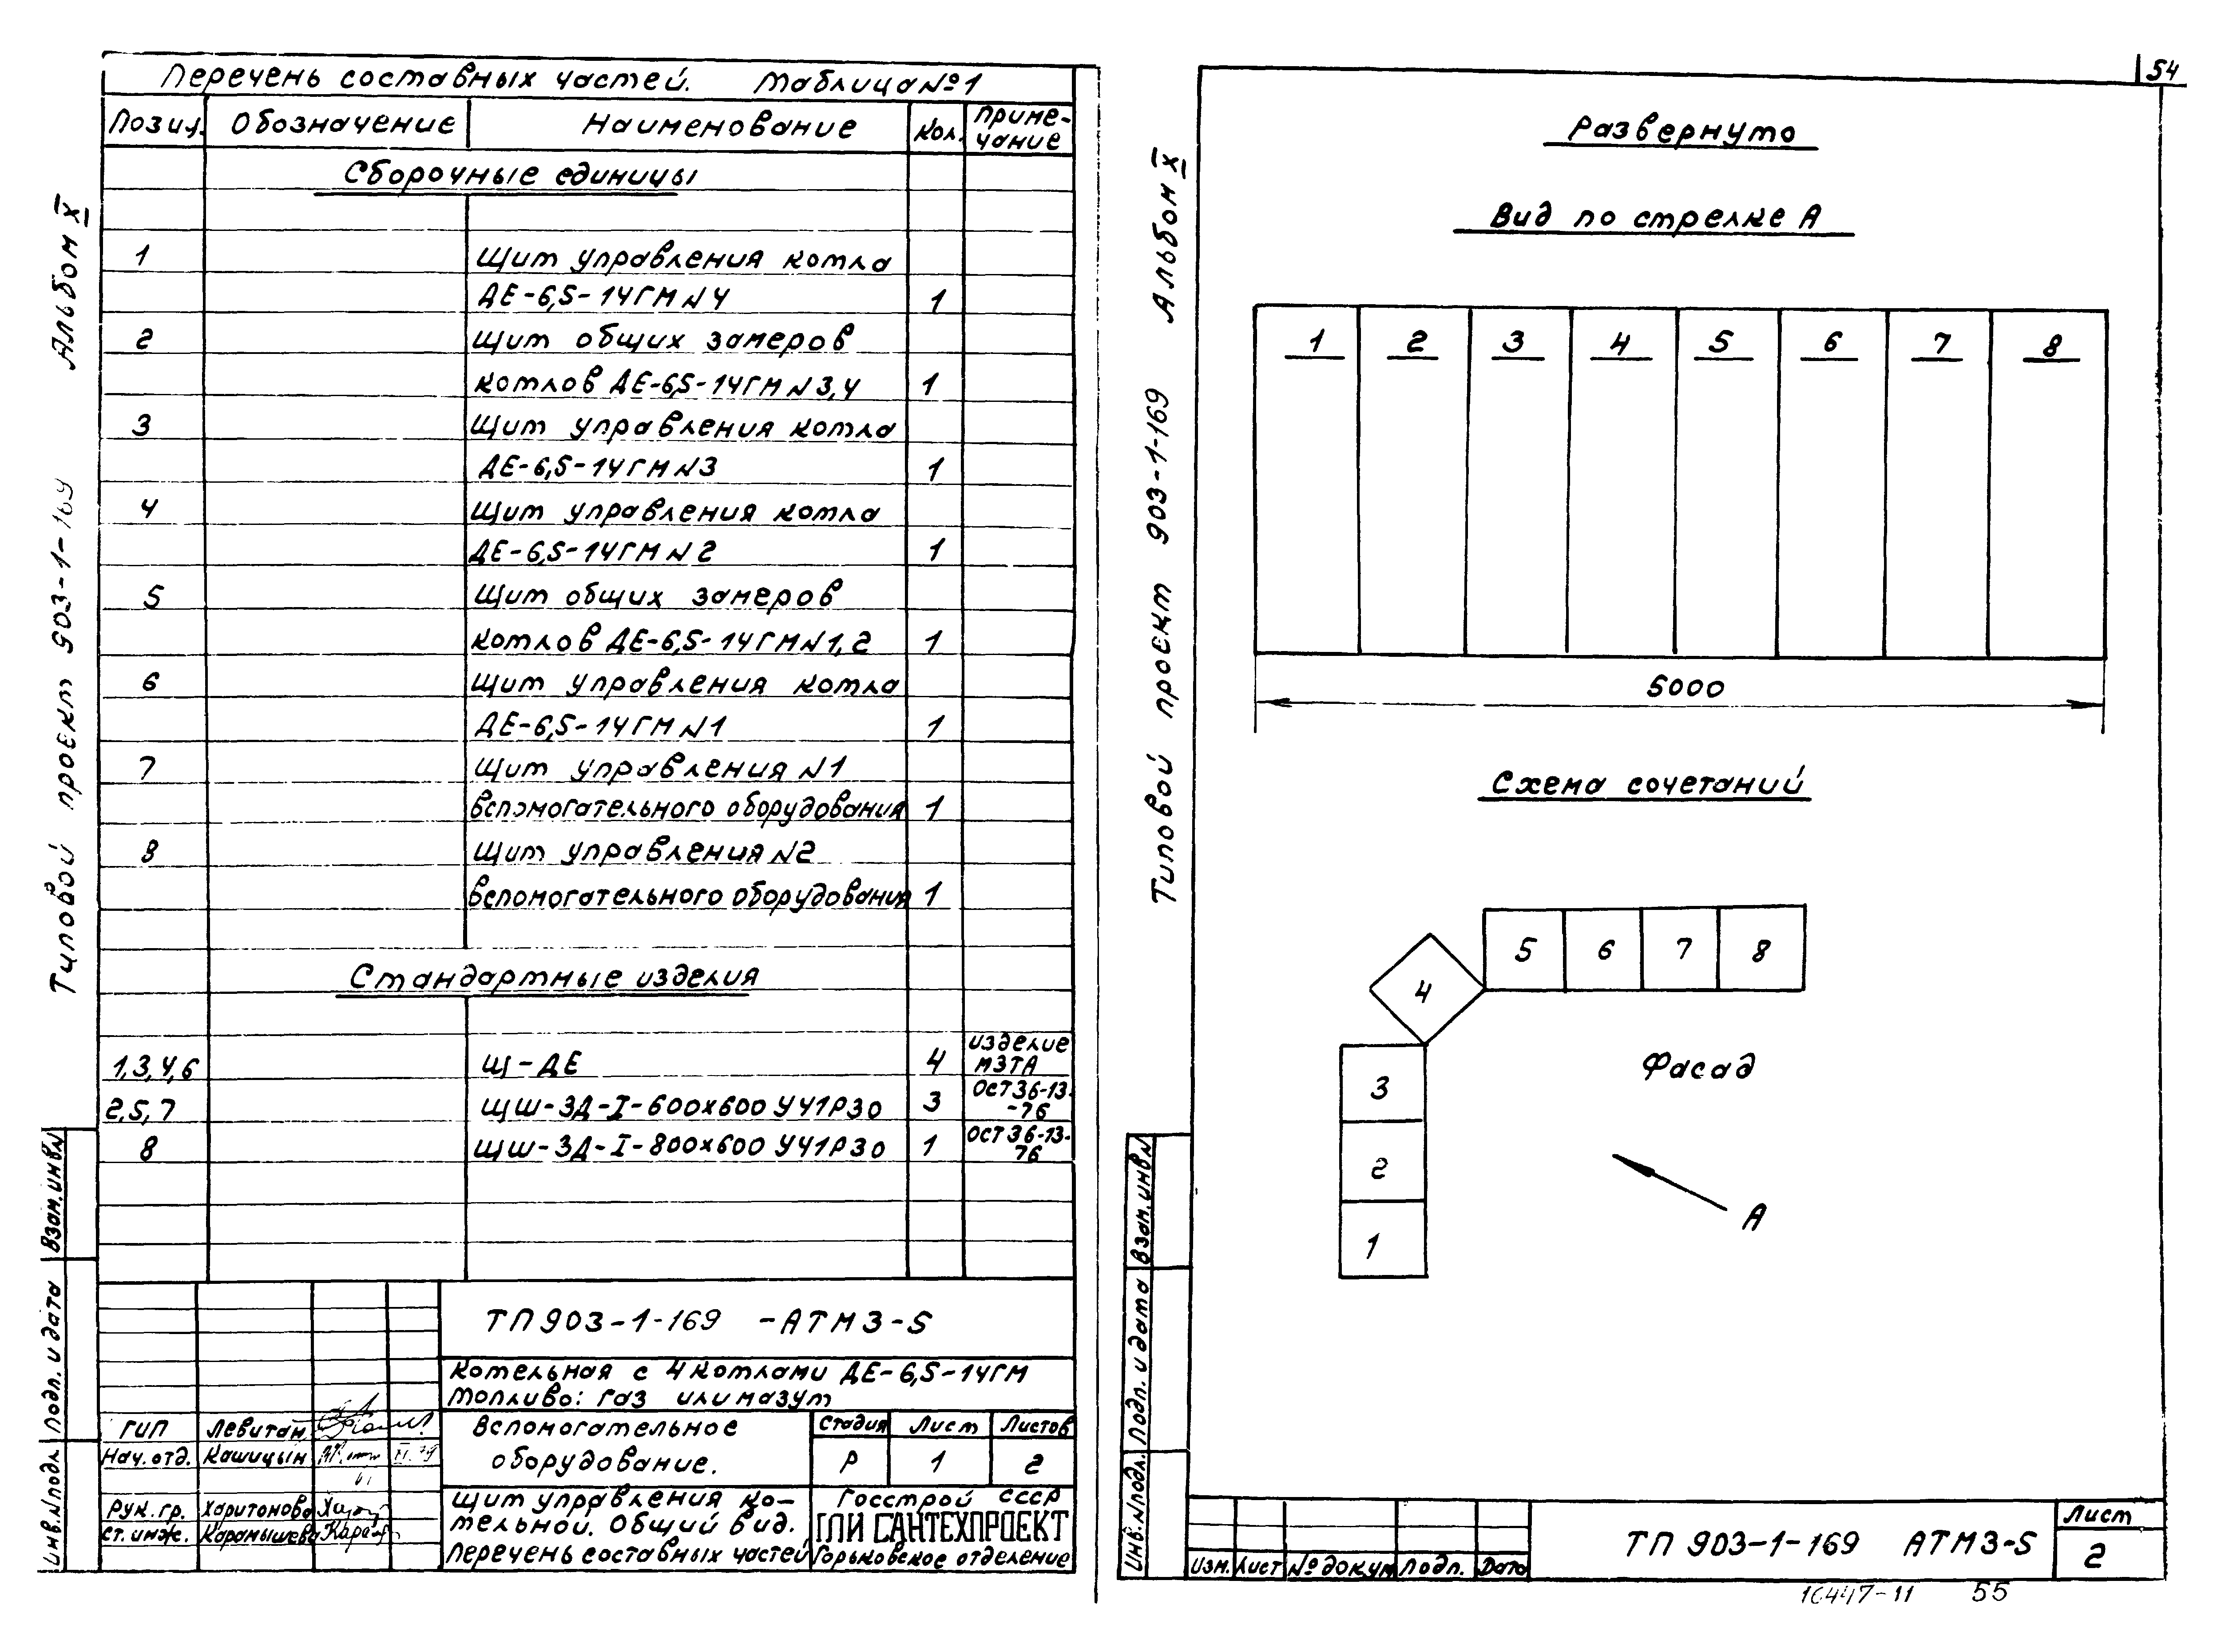 Перечень составных частей. Таблица №1
Позиц. Обозначение Наименование Кол. Приме-
чание
Сборочные единицы
1 Щит управления котла
ДЕ-6,5-14ГМ N4 1
2 Щит общих замеров
котлов ДЕ-6,5-14ГМ N3,4 1
3 Щит управления котла
ДЕ-6,5-14ГМ N3 1
4 Щит управления котла
ДЕ-6,5-14ГМ N2 1
5 Щит общих замеров
котлов ДЕ-6,5-14ГМ N1,2 1
6 Щит управления котла
ДЕ-6,5-14ГМ N1 1
7 Щит управления N1
вспомогательного оборудования 1
8 Щит управления N2
вспомогательного оборудования 1
Стандартные изделия
1,3,4,6 Щ-ДЕ 4 изделие
МЗТА
2,5,7 ЩШ-ЗД-I-600х600 УЧ1Р30 3 ОСТ36-13-
-76
8 ЩШ-ЗД-I-800х600 УЧ1Р30 1 ОСТ36-13-
76
ТП 903-1-169 -АТМ3-5
Котельная с 4 котлами ДЕ-6,5-14ГМ
Топливо: газ или мазут
ГИП Левитан
Нач. отд. Кашицын
Рук. гр. Харитонова
Ст. инж. Карамышева
Вспомогательное
оборудование.
Стадия Лист Листов
Р 1 2
Щит управления ко-
тельной. Общий вид.
Перечень составных частей
Госстрой СССР
ГПИ САНТЕХПРОЕКТ
Горьковское отделение
Типовой проект 903-1-169 Альбом X
Инв.N подл. Подп. и дата Взам.инв.N
54
Развернуто
Вид по стрелке А
1 2 3 4 5 6 7 8
5000
Схема сочетаний
5 6 7 8
4
3
2
1
Фасад
А
Типовой проект 903-1-169 Альбом X
Инв.N подл. Подп. и дата Взам.инв.N
Изм. Лист № докум Подп. Дата
ТП 903-1-169 АТМ3-5
Лист
2
16447-11 55